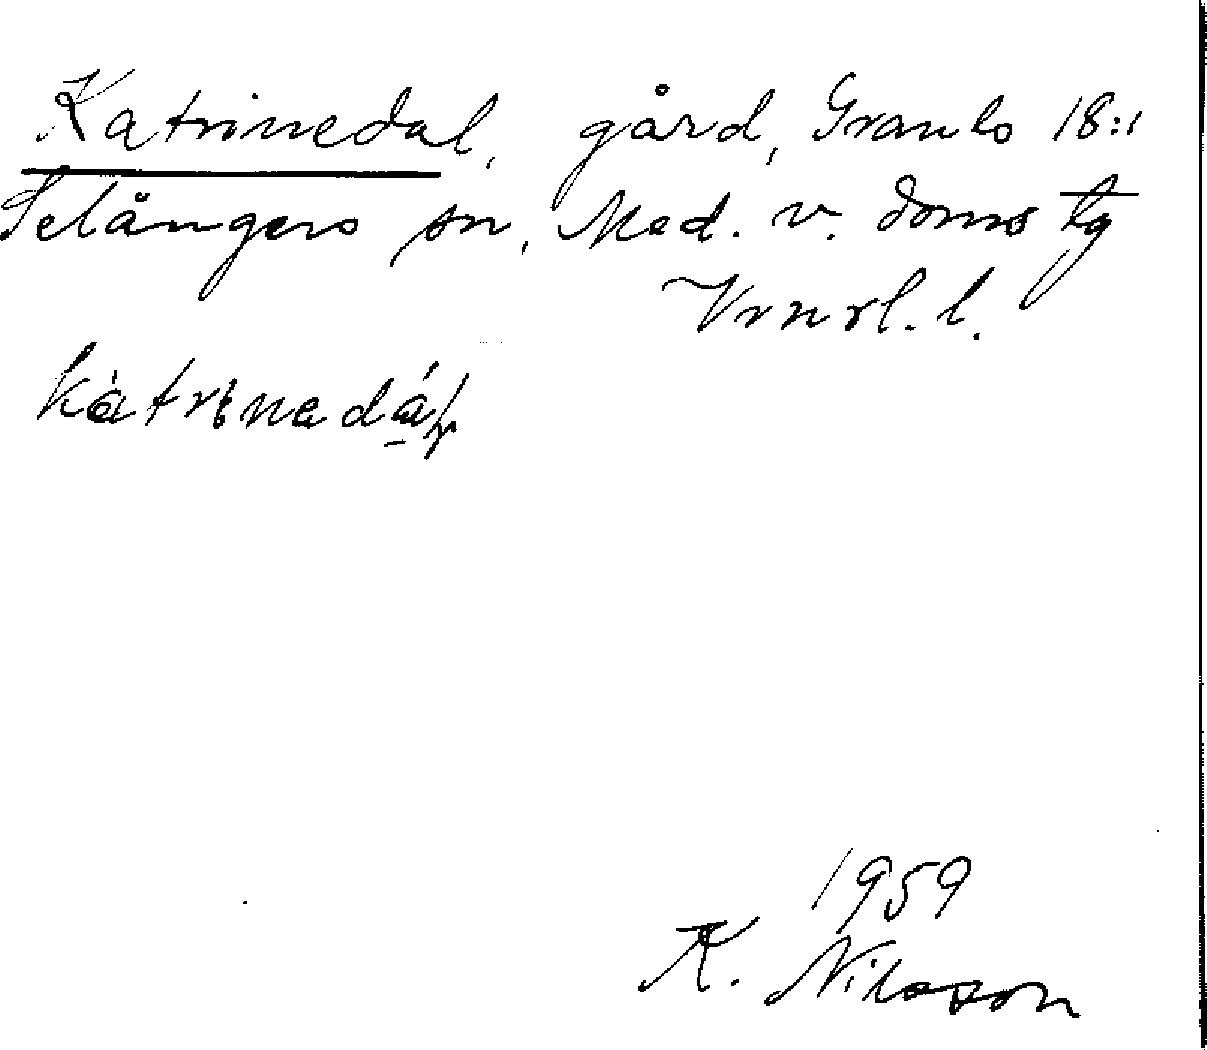 Katrinedal, gård, Granlo 18:1
Selångers sn, Med. v. doms tg
Vrnrl. l.
kàtrinadál
1959
K. Nilsson